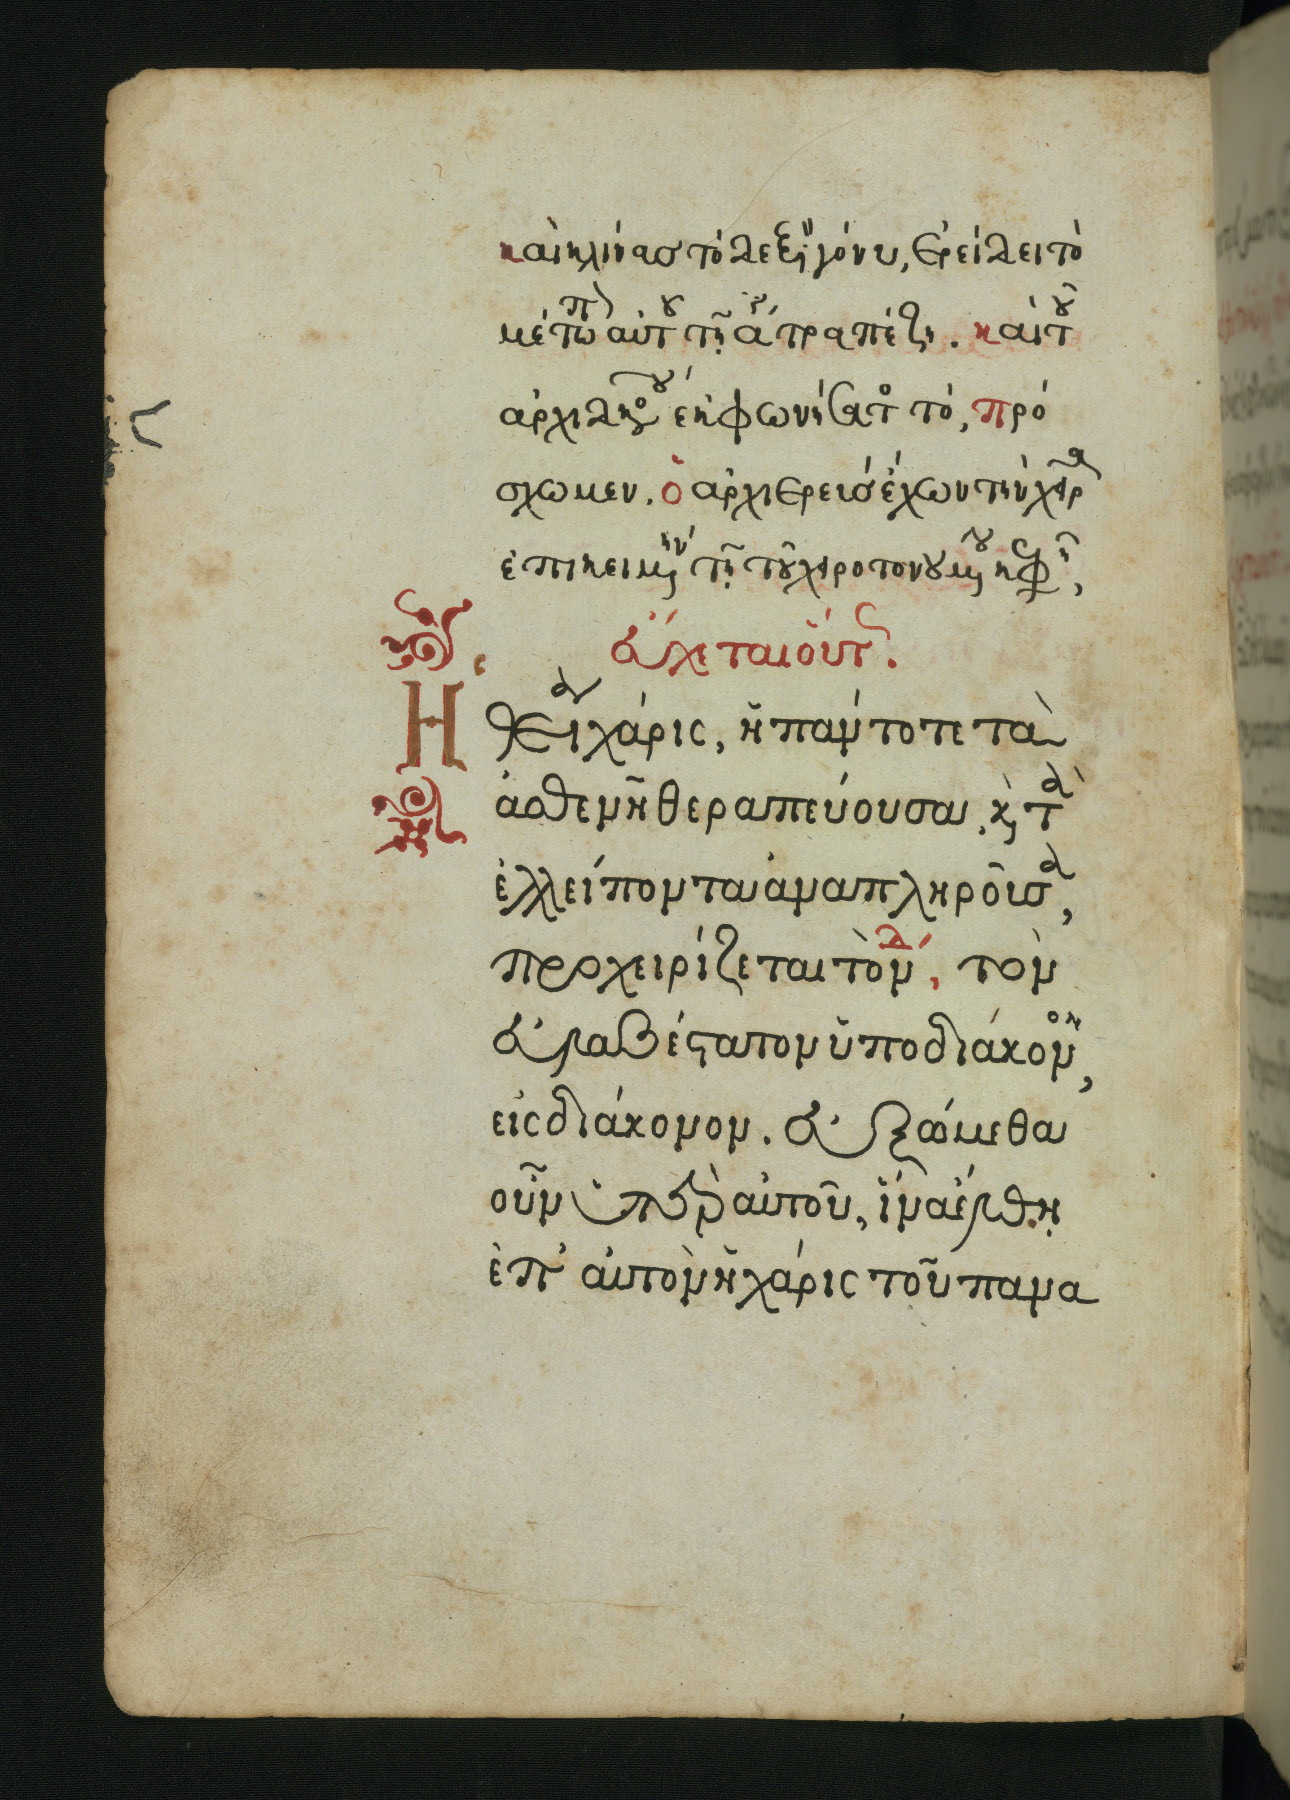 καὶ κλίνας τὸ δεξιὸν γόνυ, ἐρείδει τὸ
μέτωπ αὐτοῦ τῆ ἁγία τραπέζη. καὶ τοῦ
ἀρχιδιακόνου ἐκφωνήσαντος τό, πρό
σχωμεν. ὁ ἀρχιερεὺς ἔχων τὴν χεῖρα
ἐπικειμένην τῆ τοῦ χειροτονουμένου κεφαλῆ,
εὔχεται οὕτως.
Ἡ θεία χάρις, ἡ πάντοτε τὰ
ἀσθενῆ θεραπεύουσα, κ τὰ
ἐλλείποντα ἀναπληροῦσα,
προχειρίζεται τὸν δ, τὸν
εὐλαβέστατον ὑποδιάκονον,
εἰς διάκονον. εὐξώμεθα
οὖν ὑπὲρ αὐτοῦ, ἵνα ἔλθη
ἐπ' αὐτὸν ἡ χάρις τοῦ πανα